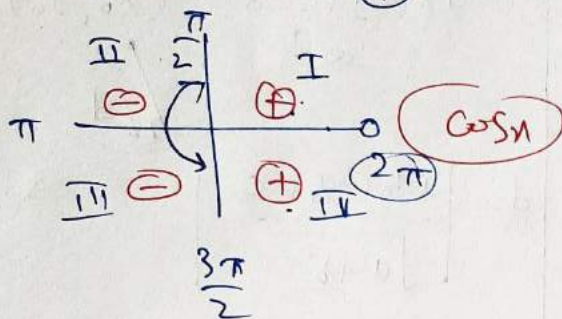 π/2
II I
⊖ ⊕
π 0 cosx
2π
III ⊖ ⊕ IV
3π/2